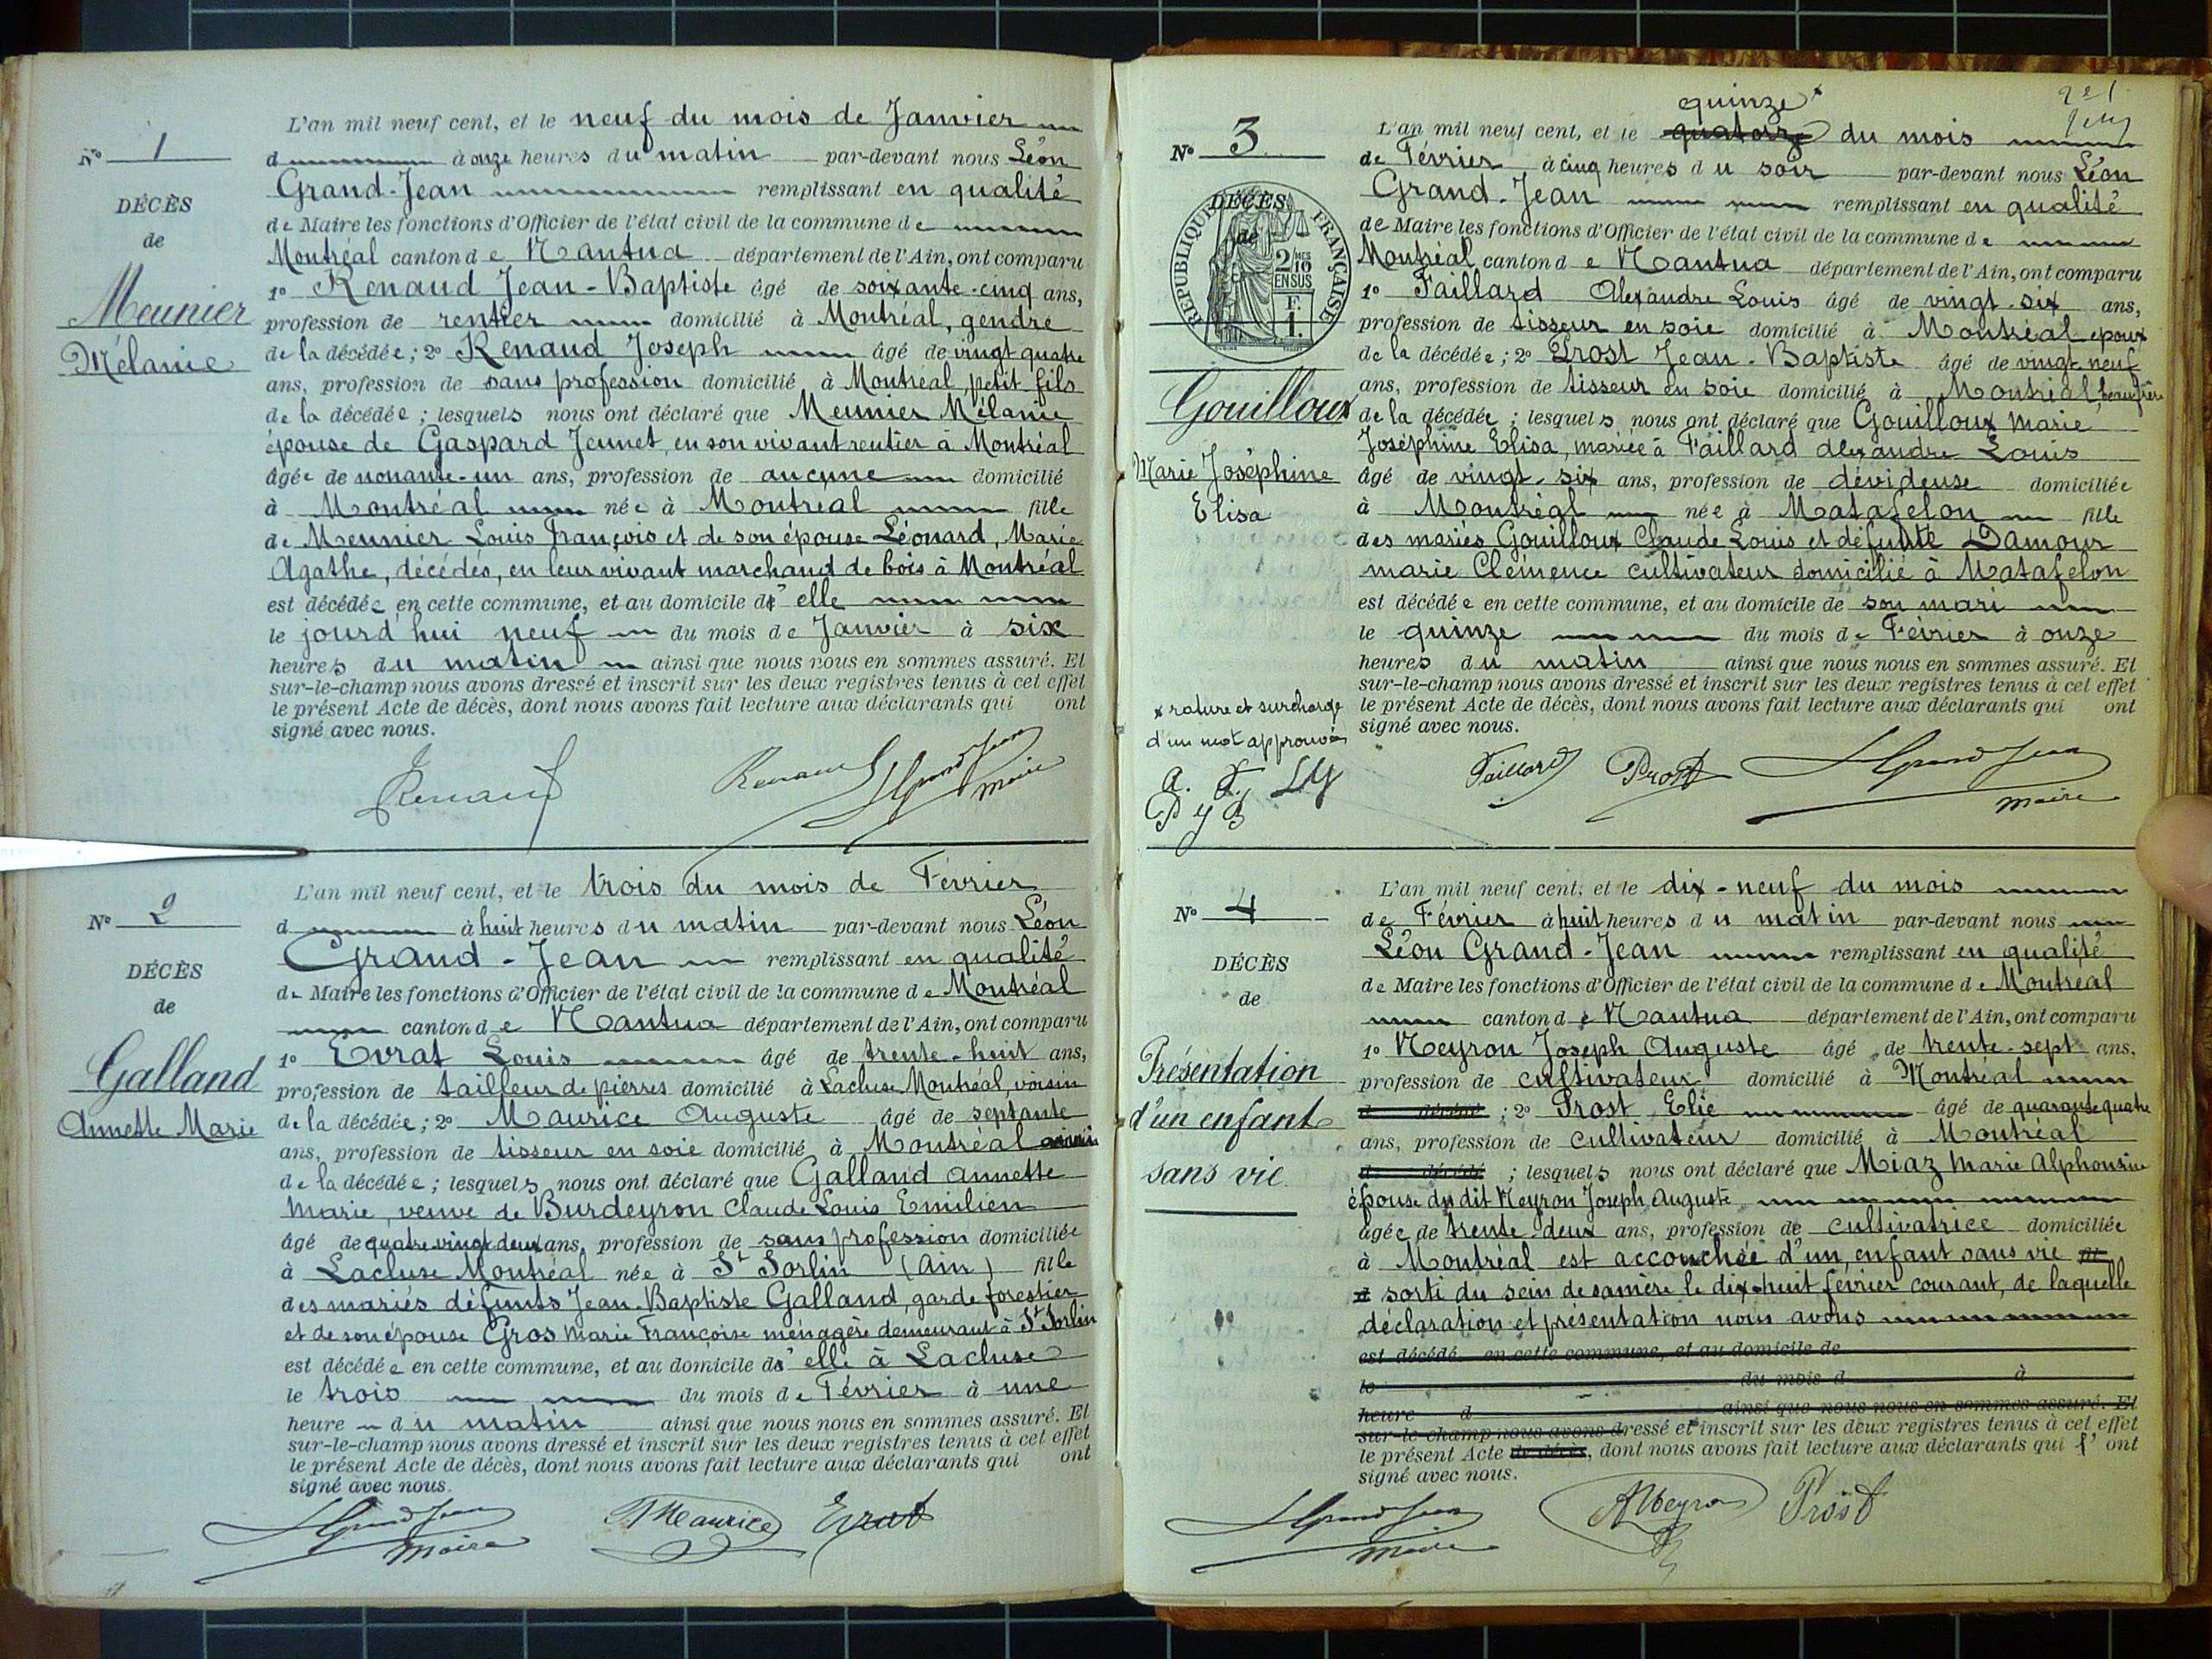 N° 1
DÉCÈS
de
Meunier
Mélanie
L'an mil neuf cent, et le neuf du mois de Janvier
d à onze heures du matin par-devant nous Léon
Grand-Jean remplissant en qualité
de Maire les fonctions d'Officier de l'état civil de la commune de
Montréal canton de Nantua département de l'Ain, ont comparu
1° Renaud Jean-Baptiste âgé de soixante-cinq ans,
profession de rentier domicilié à Montréal, gendre
de la décédée; 2° Renaud Joseph âgé de vingt quatre
ans, profession de sans profession domicilié à Montréal petit fils
de la décédée; lesquels nous ont déclaré que Meunier Mélanie
épouse de Gaspard Jeunet, en son vivant rentier à Montréal
âgée de nonante-un ans, profession de aucune domicilié
à Montréal née à Montréal fille
de Meunier Louis François et de son épouse Léonard, Marie
Agathe, décédés, en leur vivant marchand de bois à Montréal
est décédée en cette commune, et au domicile d'elle
le jourd'hui neuf du mois de Janvier à six
heures du matin ainsi que nous nous en sommes assuré. Et
sur-le-champ nous avons dressé et inscrit sur les deux registres tenus à cet effet
le présent Acte de décès, dont nous avons fait lecture aux déclarants qui ont
signé avec nous.
Renaud Renaud L Grand Jean
maire
N° 2
DÉCÈS
de
Galland
Annette Marie
L'an mil neuf cent, et le trois du mois de Février
d à huit heures du matin par-devant nous Léon
Grand-Jean remplissant en qualité
de Maire les fonctions d'Officier de l'état civil de la commune de Montréal
canton de Nantua département de l'Ain, ont comparu
1° Evrat Louis âgé de trente-huit ans,
profession de tailleur de pierres domicilié à Lacluse Montréal, voisin
de la décédée; 2° Maurice Auguste âgé de septante
ans, profession de tisseur en soie domicilié à Montréal
de la décédée; lesquels nous ont déclaré que Galland Annette
Marie, veuve de Burdeyron Claude Louis Emilien
âgé de quatre vingt deux ans, profession de sans profession domiciliée
à Lacluse Montréal née à St Sorlin (Ain) fille
des mariés défunts Jean-Baptiste Galland, garde forestier
et de son épouse Gros Marie Françoise ménagère demeurant à St Sorlin
est décédée en cette commune, et au domicile d'elle à Lacluse
le trois du mois de Février à une
heure du matin ainsi que nous nous en sommes assuré. Et
sur-le-champ nous avons dressé et inscrit sur les deux registres tenus à cet effet
le présent Acte de décès, dont nous avons fait lecture aux déclarants qui ont
signé avec nous.
L Grand Jean Maurice Evrat
maire
N° 3
DÉCÈS
de
RÉPUBLIQUE FRANÇAISE
2/10
EN SUS
F.
1.
Gouilloux
Marie Joséphine
Elisa
quinze x
L'an mil neuf cent, et le quatorze du mois
de Février à cinq heures du soir par-devant nous Léon
Grand-Jean remplissant en qualité
de Maire les fonctions d'Officier de l'état civil de la commune de
Montréal canton de Nantua département de l'Ain, ont comparu
1° Faillard Alexandre Louis âgé de vingt-six ans,
profession de tisseur en soie domicilié à Montréal epoux
de la décédée; 2° Prost Jean-Baptiste âgé de vingt neuf
ans, profession de tisseur en soie domicilié à Montréal, beaufrère
de la décédée; lesquels nous ont déclaré que Gouilloux Marie
Joséphine Elisa, mariée à Faillard Alexandre Louis
âgé de vingt-six ans, profession de dévideuse domiciliée
à Montréal née à Matafelon fille
des mariés Gouilloux Claude Louis et défunte Damour
marie Clémence cultivateur domicilié à Matafelon
est décédée en cette commune, et au domicile de son mari
le quinze du mois de Février à onze
heures du matin ainsi que nous nous en sommes assuré. Et
sur-le-champ nous avons dressé et inscrit sur les deux registres tenus à cet effet
le présent Acte de décès, dont nous avons fait lecture aux déclarants qui ont
signé avec nous.
x rature et surcharge
d'un mot approuvés
Faillard Prost L Grand Jean
maire
N° 4
DÉCÈS
de
Présentation
d'un enfant
sans vie
L'an mil neuf cent, et le dix-neuf du mois
de Février à huit heures du matin par-devant nous
Léon Grand-Jean remplissant en qualité
de Maire les fonctions d'Officier de l'état civil de la commune de Montréal
canton de Nantua département de l'Ain, ont comparu
1° Neyron Joseph Auguste âgé de trente-sept ans,
profession de cultivateur domicilié à Montréal
d décédé; 2° Prost Elie âgé de quarante quatre
ans, profession de cultivateur domicilié à Montréal
de décédé; lesquels nous ont déclaré que Miaz Marie Alphonsine
épouse du dit Neyron Joseph Auguste
âgée de trente-deux ans, profession de cultivatrice domiciliée
à Montréal est accouchée d'un enfant sans vie
sorti du sein de sa mère le dix-huit février courant, de laquelle
déclaration et présentation nous avons
est décédé en cette commune, et au domicile de
le du mois d à
heure d ainsi que nous nous en sommes assuré. Et
sur-le-champ nous avons dressé et inscrit sur les deux registres tenus à cet effet
le présent Acte de décès, dont nous avons fait lecture aux déclarants qui l'ont
signé avec nous.
L Grand Jean A Neyron Prost
maire